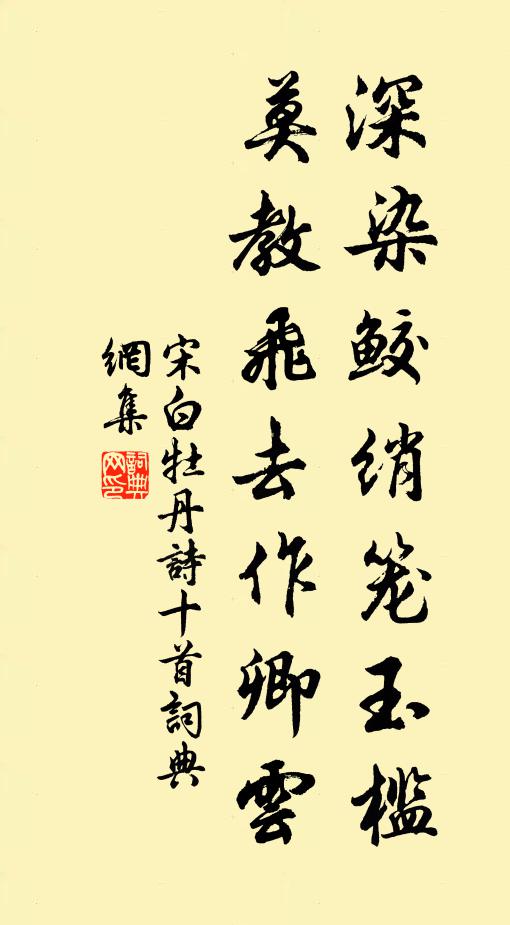 深染鲛绡笼玉槛
莫教飛去作卿雲
宋白牡丹詩十首詞典
網集
詞典
网印